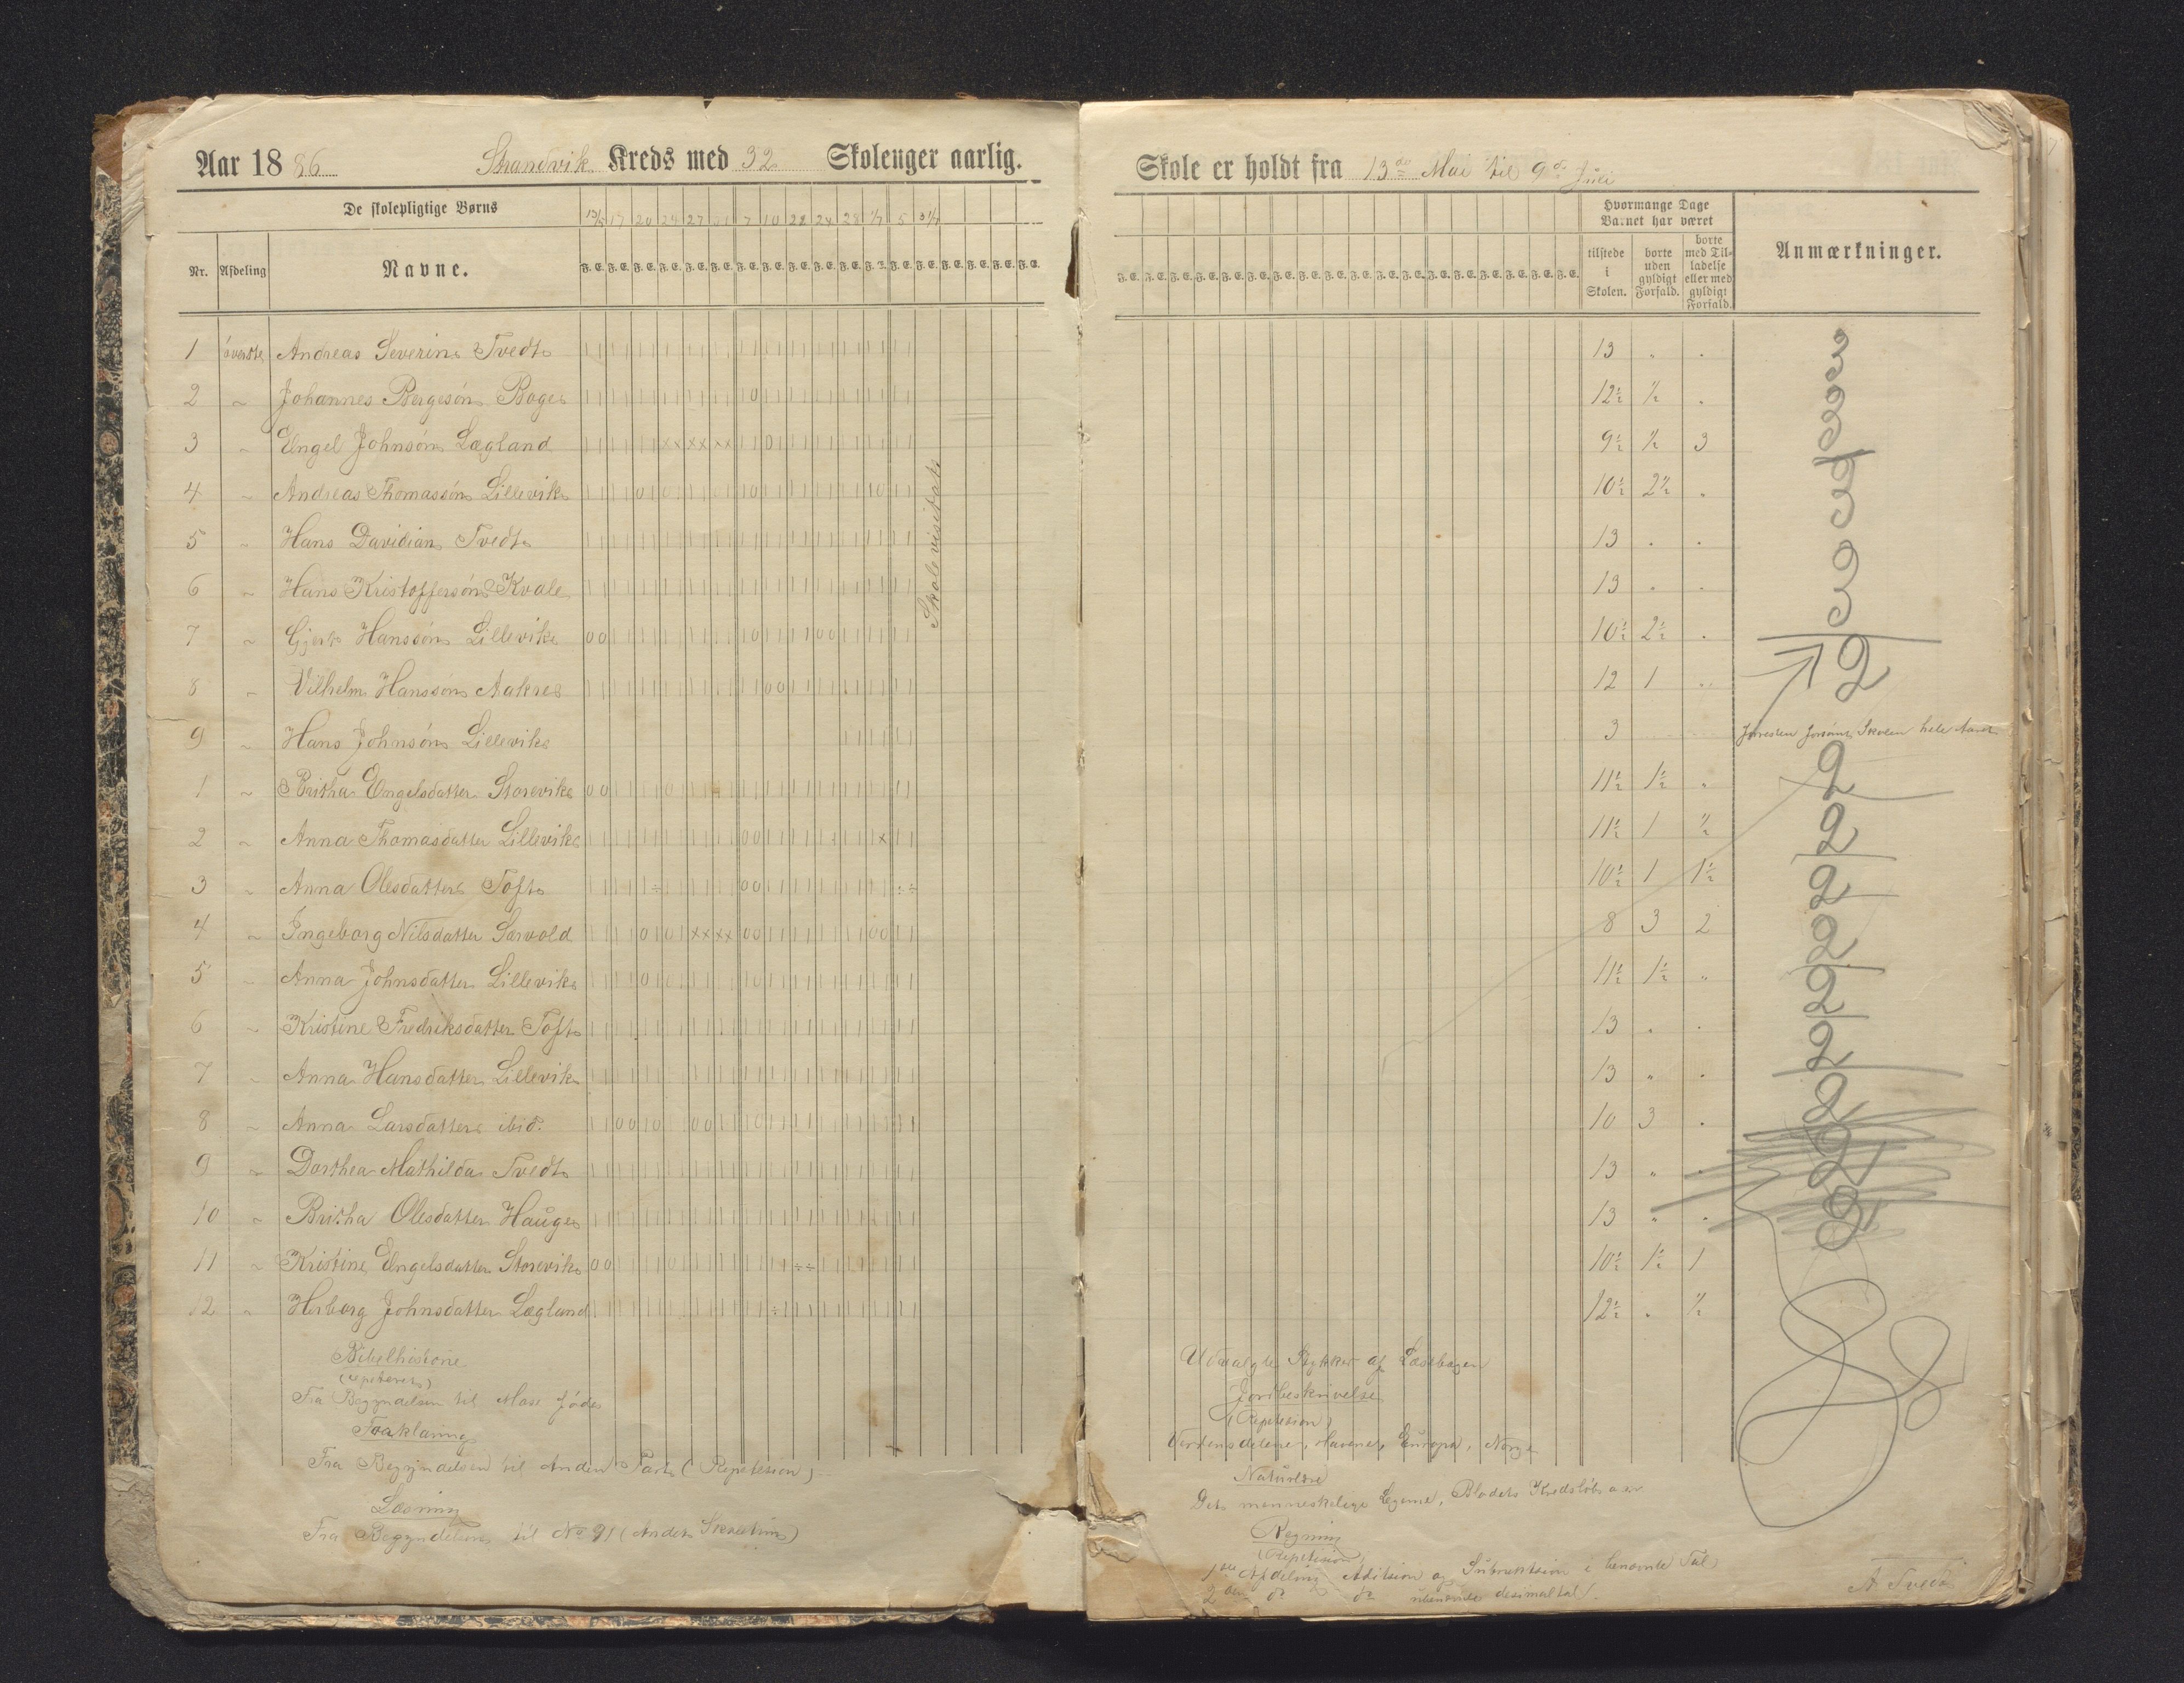 Aar 1886 Strandvik Kreds med 32 Skoleuger aarlig.
De skolepligtige Børns
13/5 17 20 24 27 31 7 10 22 24 28 1/7 5 9/7
Nr. Afdeling Navne. F. E. F. E. F. E. F. E. F. E. F. E. F. E. F. E. F. E. F. E. F. E. F. E. F. E. F. E. F. E. F. E. F. E. F. E.
1 øverste Andreas Severin Tvedt
2 " Johannes Bergesøn Boge
3 " Engel Johnsøn Lægland
4 " Andreas Thomassøn Lillevik
5 " Hans Davidian Tvedt
6 " Hans Kristoffersøn Kvale
7 " Gjert Hanssøn Lillevik
8 " Vilhelm Hanssøn Aakre
9 " Hans Johnsøn Lillevik
1 " Britha Engelsdatter Storevik
2 " Anna Thomasdatter Lillevik
3 " Anna Olesdatter Toft
4 " Ingeborg Nilsdatter Sørvold
5 " Anna Johnsdatter Lillevik
6 " Kristine Fredriksdatter Toft
7 " Anna Hansdatter Lillevik
8 " Anna Larsdatter ibid.
9 " Dorthea Mathilda Tvedt
10 " Britha Olesdatter Hauge
11 " Kristine Engelsdatter Storevik
12 " Herborg Johnsdatter Lægland
Skolevisitats
Bibelhistorie
(repeteret)
Fra Begyndelsen til Mose fødes
Forklaring
Fra Begyndelsen til Anden Part (Repetesion)
Læsning
Fra Begyndelsen til No 91 (Andet Skoletrin)
Skole er holdt fra 13de Mai til 9de Juli
Hvormange Dage Barnet har været
tilstede i Skolen. borte uden gyldigt Forfald. borte med Tilladelse eller med gyldigt Forfald. Anmærkninger.
13 " "
12½ ½ "
9½ ½ 3
10½ 2½ "
13 " "
13 " "
10½ 2½ "
12 1 "
3 forresten forsømt Skolen hele Aaret
11½ 1½ "
11½ 1 ½
10½ 1 1½
8 3 2
11½ 1½ "
13 " "
13 " "
10 3 "
13 " "
13 " "
10½ 1½ 1
12½ " ½
Udvalgte Stykker af Læsebogen
Jordbeskrivelse
(Repetesion)
Verdensdelene, Havene, Europa, Norge
Naturlære
Det menneskelige Legeme, Blodets Kredsløb o.s.v.
Regning
(Repetision)
1ste Afdeling Adition og Subtraktsion i benævnte Tal
2den do do ubenævnte desimaltal.
A Tvedt